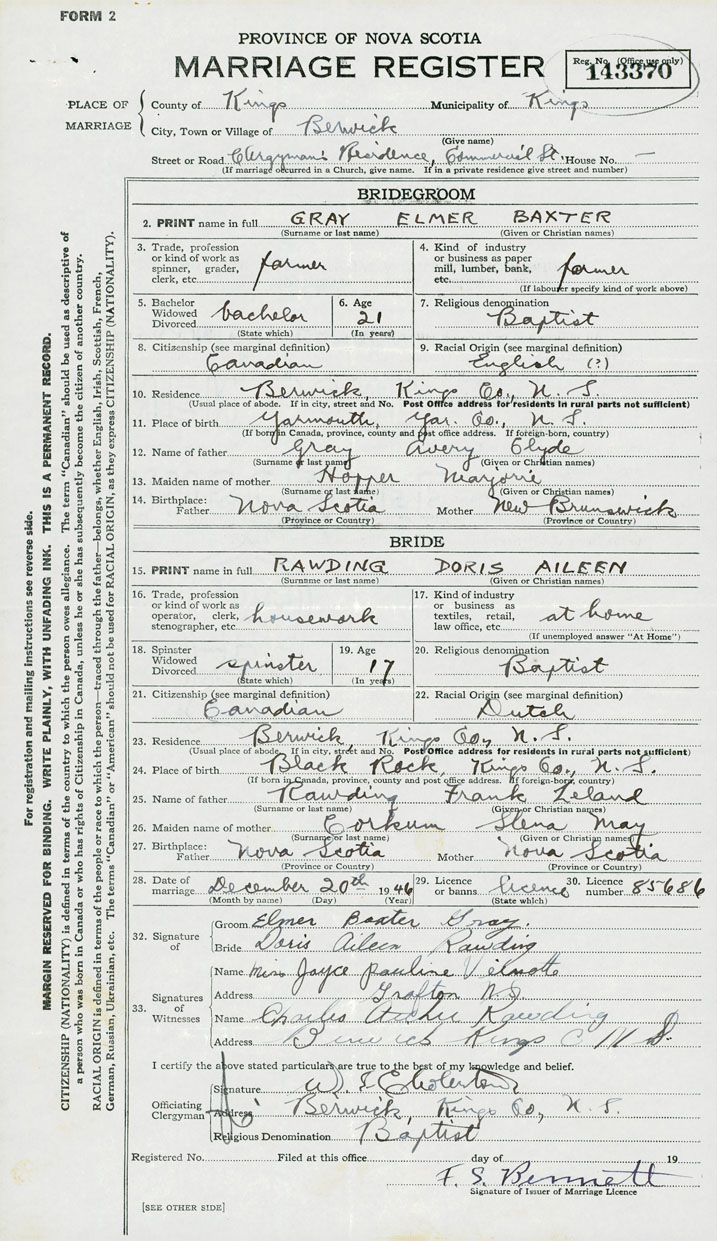 FORM 2
PROVINCE OF NOVA SCOTIA
MARRIAGE REGISTER
Reg. No. (Office use only)
143370
PLACE OF MARRIAGE
County of Kings Municipality of Kings
City, Town or Village of Berwick
(Give name)
Street or Road Clergyman's Residence, Commercial St. House No. —
(If marriage occurred in a Church, give name. If in a private residence give street and number)
BRIDEGROOM
2. PRINT name in full GRAY ELMER BAXTER
(Surname or last name) (Given or Christian names)
3. Trade, profession or kind of work as spinner, grader, clerk, etc. farmer
4. Kind of industry or business as paper mill, lumber, bank, etc. farmer
(If labourer specify kind of work above)
5. Bachelor Widowed Divorced bachelor
(State which)
6. Age 21
(In years)
7. Religious denomination
Baptist
8. Citizenship (see marginal definition)
Canadian
9. Racial Origin (see marginal definition)
English (?)
10. Residence Berwick, Kings Co., N. S
(Usual place of abode. If in city, street and No. Post Office address for residents in rural parts not sufficient)
11. Place of birth Yarmouth, Yar. Co., N. S.
(If born in Canada, province, county and post office address. If foreign-born, country)
12. Name of father Gray Avery Clyde
(Surname or last name) (Given or Christian names)
13. Maiden name of mother Hopper Marjorie
(Surname or last name) (Given or Christian names)
14. Birthplace: Father Nova Scotia Mother New Brunswick
(Province or Country) (Province or Country)
BRIDE
15. PRINT name in full RAWDING DORIS AILEEN
(Surname or last name) (Given or Christian names)
16. Trade, profession or kind of work as operator, clerk, stenographer, etc. housework
17. Kind of industry or business as textiles, retail, law office, etc. at home
(If unemployed answer "At Home")
18. Spinster Widowed Divorced spinster
(State which)
19. Age 17
(In years)
20. Religious denomination
Baptist
21. Citizenship (see marginal definition)
Canadian
22. Racial Origin (see marginal definition)
Dutch
23. Residence Berwick, Kings Co., N. S.
(Usual place of abode. If in city, street and No. Post Office address for residents in rural parts not sufficient)
24. Place of birth Black Rock, Kings Co., N. S.
(If born in Canada, province, county and post office address. If foreign-born, country)
25. Name of father Rawding Frank Leland
(Surname or last name) (Given or Christian names)
26. Maiden name of mother Corkum Slena May
(Surname or last name) (Given or Christian names)
27. Birthplace: Father Nova Scotia Mother Nova Scotia
(Province or Country) (Province or Country)
28. Date of marriage December 20th 1946
(Month by name) (Day) (Year)
29. Licence or banns licence
(State which)
30. Licence number 85686
32. Signature of
Groom Elmer Baxter Gray.
Bride Doris Aileen Rawding
33. Signatures of Witnesses
Name Miss Jayce Pauline
Address Grafton N.S.
Name Charles Rawding
Address Berwick Kings C N S.
I certify the above stated particulars are true to the best of my knowledge and belief.
Officiating Clergyman
Signature W.
Address Berwick, Kings Co., N. S.
Religious Denomination Baptist
Registered No. Filed at this office day of 19
F. S. Bennett
Signature of Issuer of Marriage Licence
[SEE OTHER SIDE]
For registration and mailing instructions see reverse side.
MARGIN RESERVED FOR BINDING. WRITE PLAINLY, WITH UNFADING INK. THIS IS A PERMANENT RECORD.
CITIZENSHIP (NATIONALITY) is defined in terms of the country to which the person owes allegiance. The term "Canadian" should be used as descriptive of
a person who was born in Canada or who has rights of Citizenship in Canada, unless he or she has subsequently become the citizen of another country.
RACIAL ORIGIN is defined in terms of the people or race to which the person—traced through the father—belongs, whether English, Irish, Scottish, French,
German, Russian, Ukrainian, etc. The terms "Canadian" or "American" should not be used for RACIAL ORIGIN, as they express CITIZENSHIP (NATIONALITY).